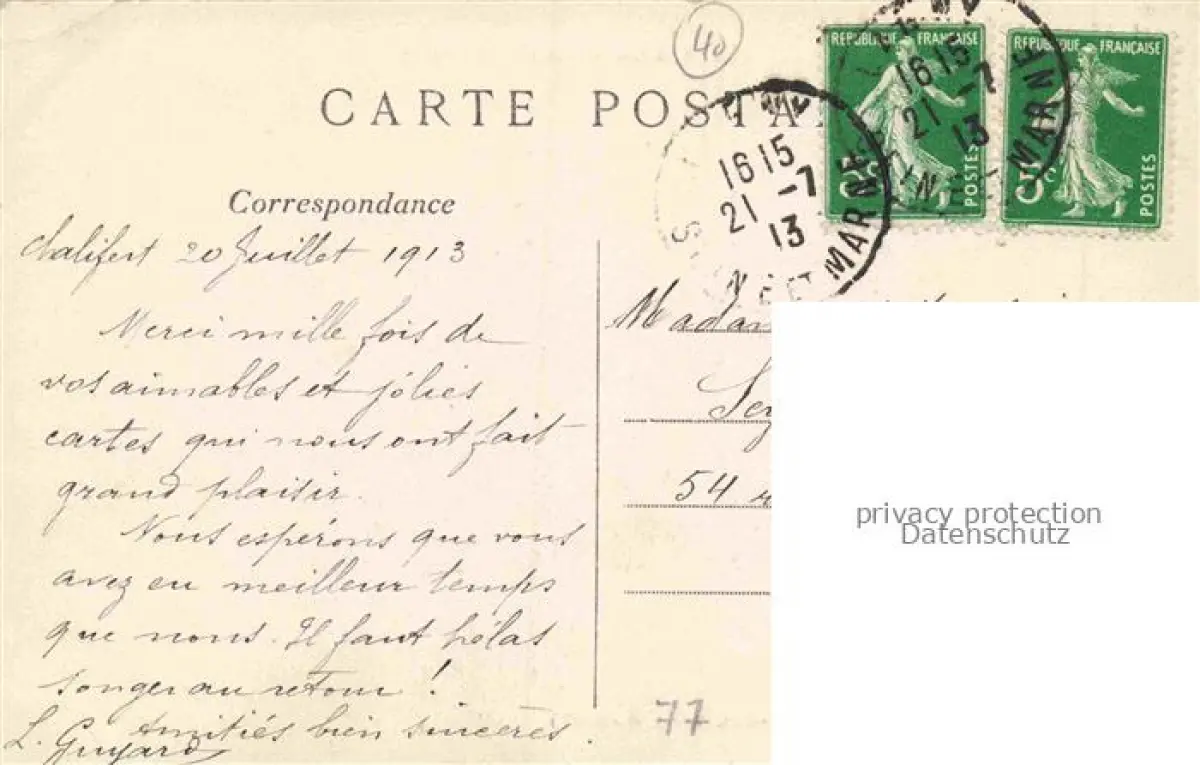 40
CARTE POSTA
REPUBLIQUE FRANÇAISE
POSTES
REPUBLIQUE FRANÇAISE
POSTES
16 15
21 -7
13
ET MARNE
16 15
21 -7
13
MARNE
Correspondance
Chalifert 20 Juillet 1913
Merci mille fois de
vos aimables et jolies
cartes qui nous ont fait
grand plaisir.
Nous espérons que vous
avez eu meilleur temps
que nous. Il faut hélas
songer au retour !
Amitiés bien sincères.
L. Guyard
Madam
54
77
privacy protection
Datenschutz